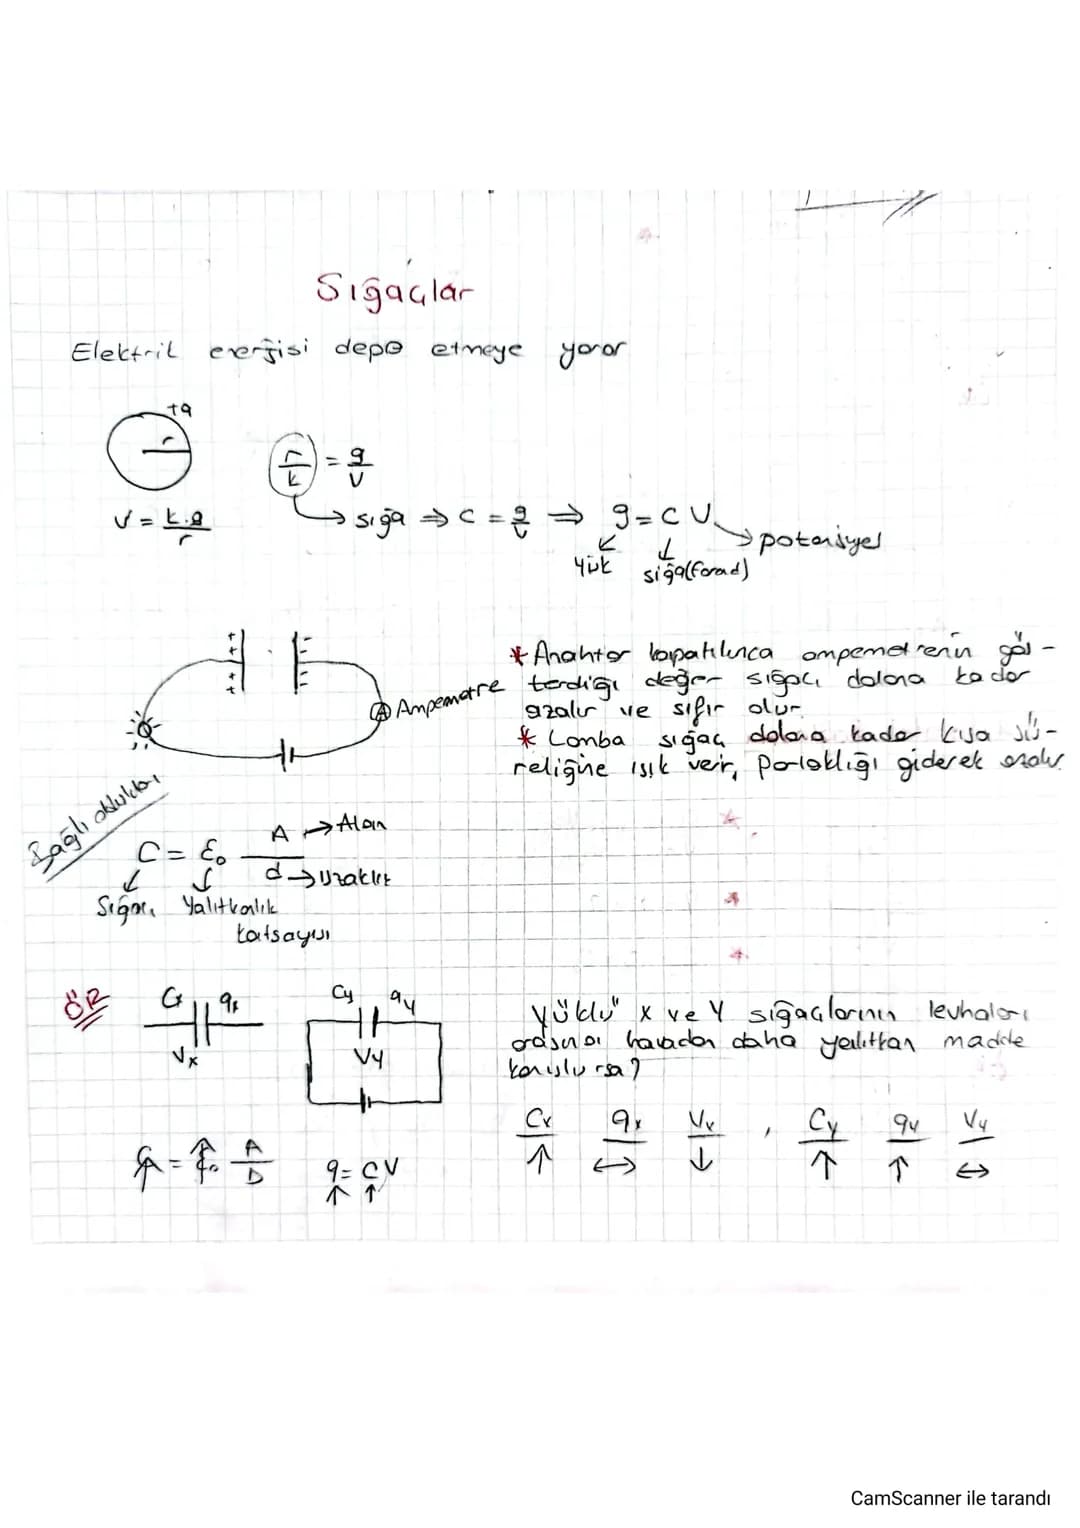 Sığaçlar
Elektrik enerjisi depo etmeye yarar
+q
r
r/k = q/V
V = k.q/r
sığa ⇒ C = q/V ⇒ q = C V → potansiyel
yük sığa(farad)
* Anahtar kapatılınca ampemetrenin gös-
terdiği değer sığacı dolana kadar
azalır ve sıfır olur.
* Lamba sığaç dolana kadar kısa sü-
reliğine ışık verir, parlaklığı giderek azalır.
A Ampemetre
Bağlı oldukları
C = ε₀ A/d
A → Alan
d → uzaklık
Sığacı Yalıtkanlık
katsayısı
ÖR
Cx qx
Vx
Cy qy
Vy
Yüklü x ve Y sığaçlarının levhaları
arasına havadan daha yalıtkan madde
konulursa?
Cx ↑ qx ↔ Vx ↓ , Cy ↑ qy ↑ Vy ↔
C↑ = ε₀↑ A/D
q = C V
↑ ↑
CamScanner ile tarandı